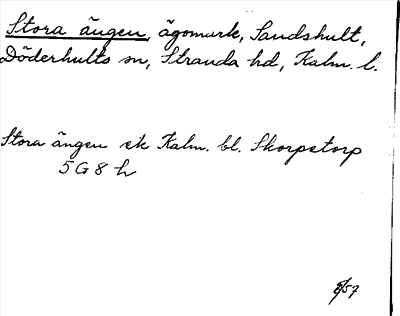 Stora ängen, ägomark, Sandshult,
Döderhults sn, Stranda hd, Kalm. l.
Stora ängen ek Kalm. bl. Skorpetorp
5 G 8 h